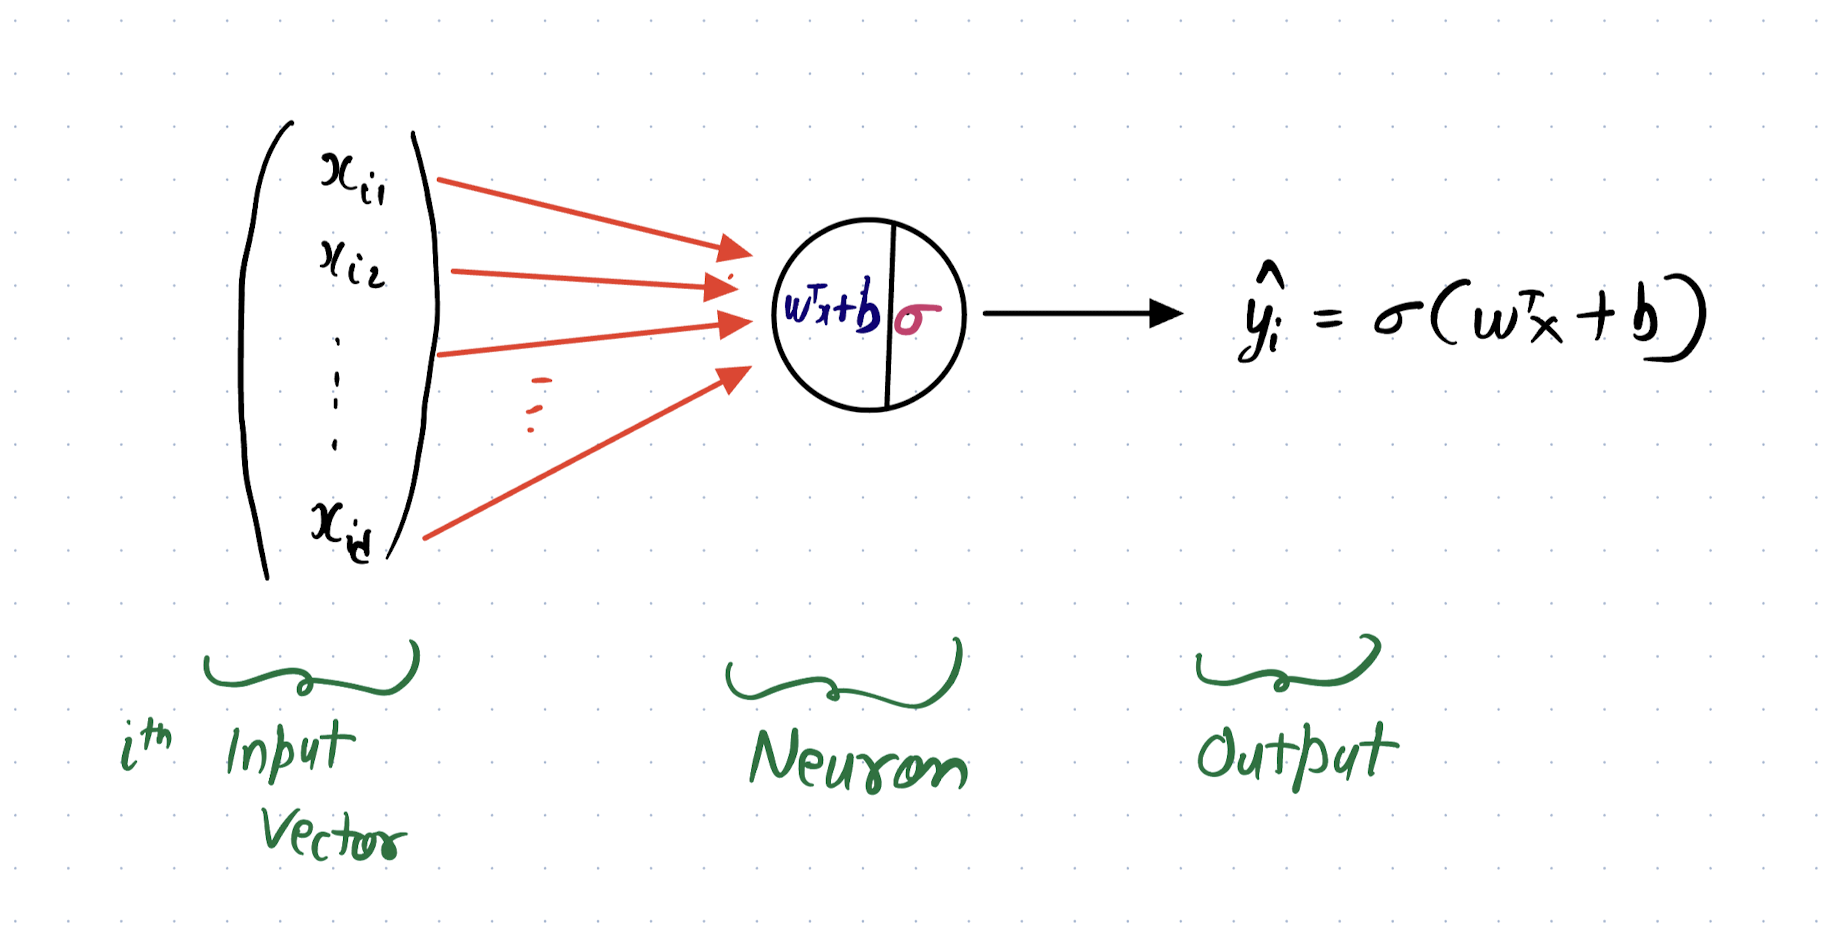 x_{i1}
x_{i2}
x_{id}
w^T x + b | σ
ŷ_i = σ(w^T x + b)
i^{th} Input
Vector
Neuron
Output